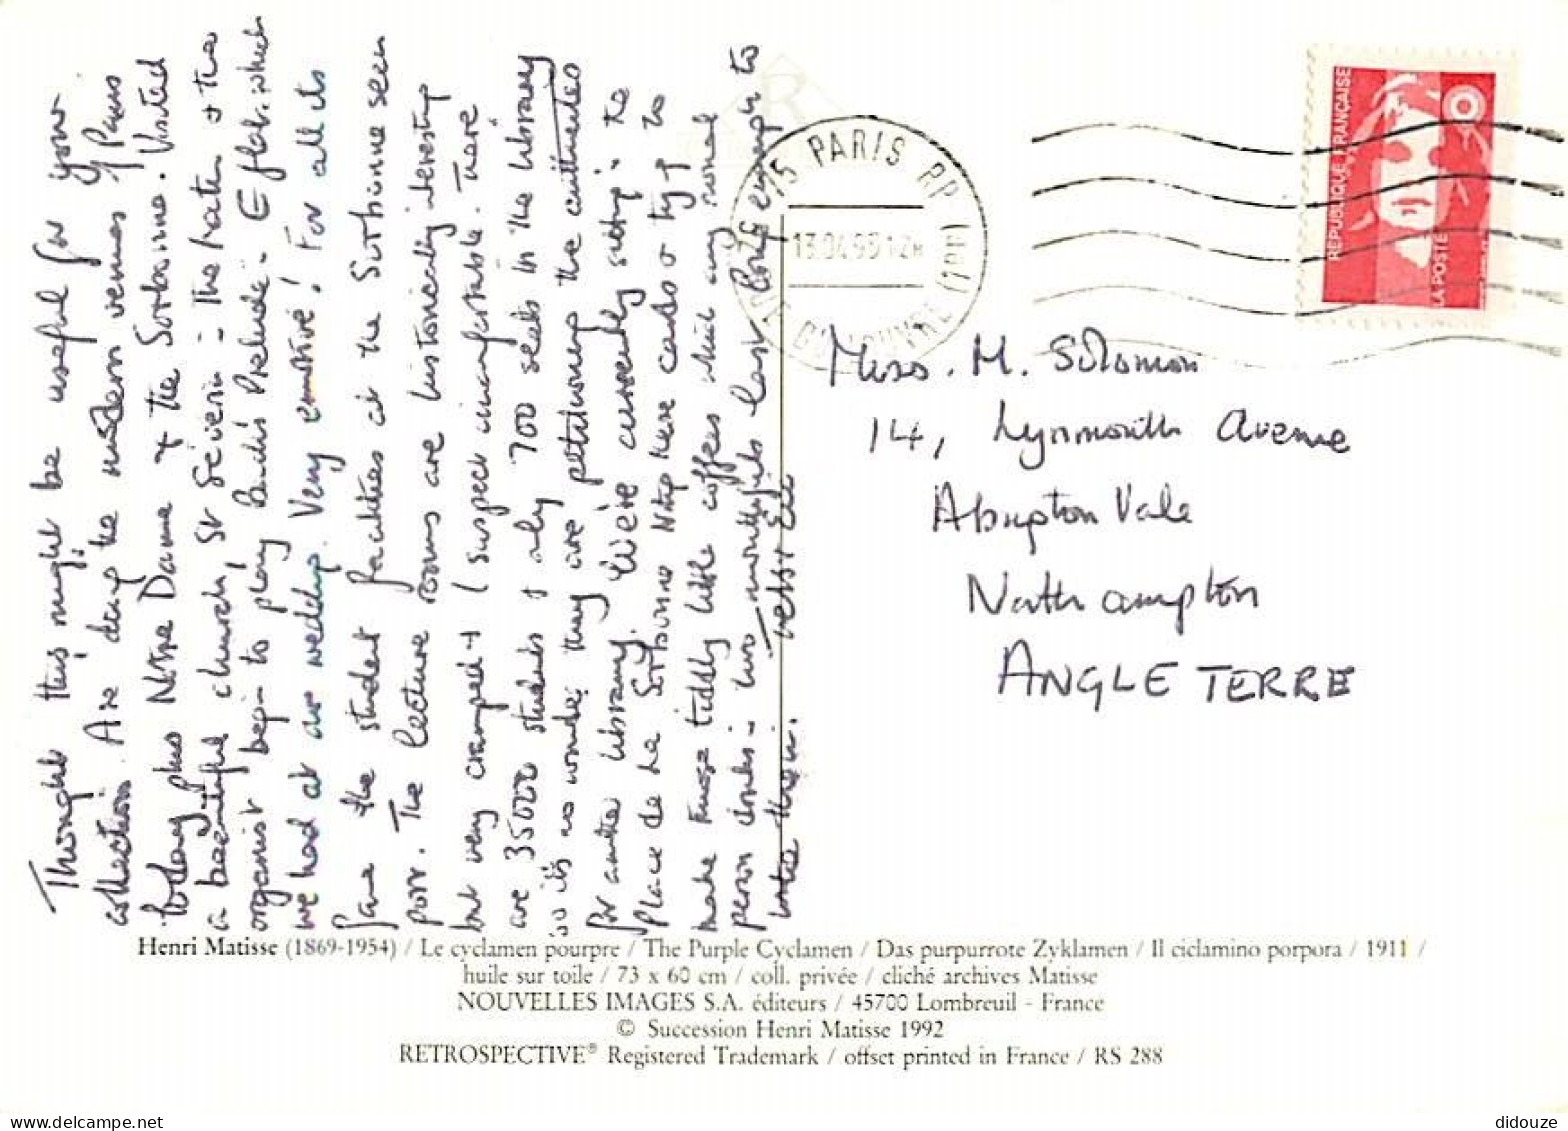 Thought this might be useful for your
collection. Are doing the modern venues of Paris
today plus Notre Dame & the Sorbonne. Visited
a beautiful church, St Séverin - The hated & the
organist began to play Bach's Prelude in E flat which
we had at our wedding. Very emotive! For all its
fame the student facilities at the Sorbonne seem
poor. The lecture rooms are historically interesting
but very cramped & I suspect uncomfortable. There
are 35000 students & only 700 seats in the library
so it's no wonder they are petitioning the authorities
for another library. We're currently sitting in the
Place de la Sorbonne writing these cards & trying to
make these tiddly little coffees which any normal
person drinks in two mouthfuls last long enough to
write them.
15 PARIS RP
13.04.93 12H
RUE DU LOUVRE (1ER)
RÉPUBLIQUE FRANÇAISE
LA POSTE
Miss. M. Solomon
14, Lynmouth Avenue
Abington Vale
Northampton
ANGLETERRE
Henri Matisse (1869-1954) / Le cyclamen pourpre / The Purple Cyclamen / Das purpurrote Zyklamen / Il ciclamino porpora / 1911 /
huile sur toile / 73 x 60 cm / coll. privée / cliché archives Matisse
NOUVELLES IMAGES S.A. éditeurs / 45700 Lombreuil - France
© Succession Henri Matisse 1992
RETROSPECTIVE® Registered Trademark / offset printed in France / RS 288
delcampe.net
didouze